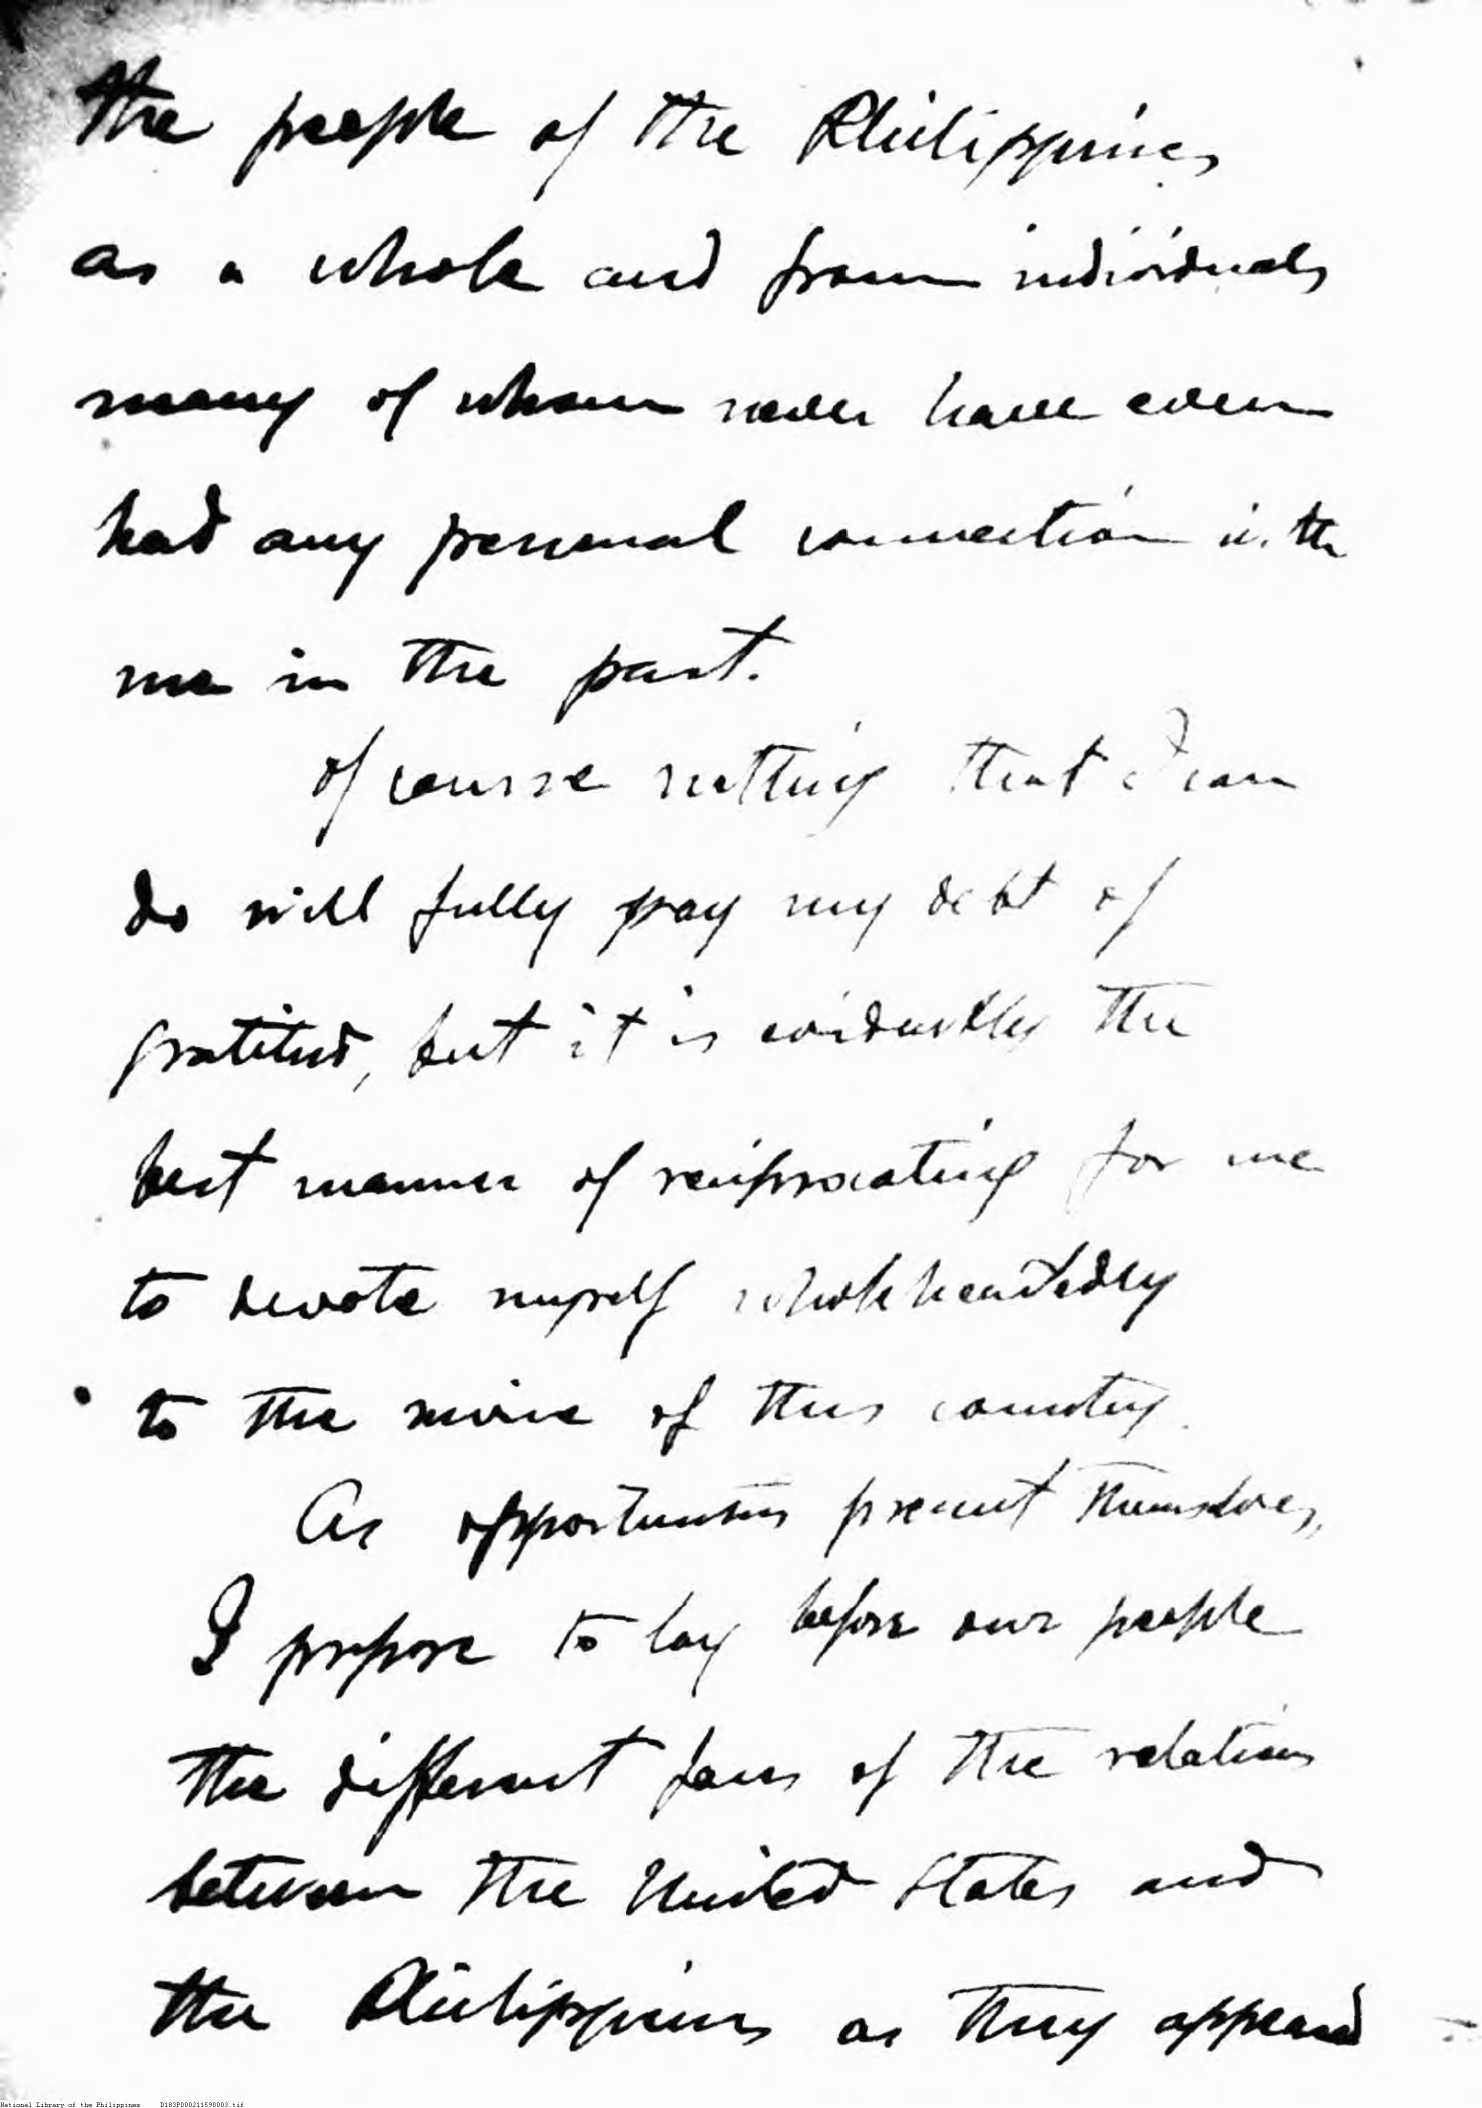 the people of the Philippines
as a whole and from individuals
many of whom never have even
had any personal connection with
me in the past.
Of course nothing that I can
do will fully pay my debt of
gratitud, but it is evidently the
best manner of reciprocating for me
to devote myself wholeheartedly
to the service of this country.
As opportunities present themselves,
I propose to lay before our people
the different faces of the relations
between the United States and
the Philippines as they appeared
National Library of the Philippines D183P000211590003.tif